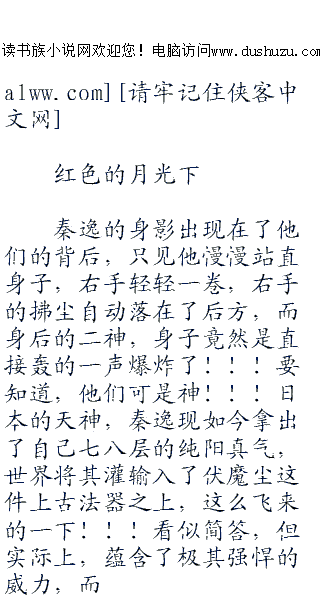 读书族小说网欢迎您！电脑访问www.dushuzu.com
alww.com][请牢记住侠客中
文网]
红色的月光下
秦逸的身影出现在了他
们的背后，只见他慢慢站直
身子，右手轻轻一卷，右手
的拂尘自动落在了后方，而
身后的二神，身子竟然是直
接轰的一声爆炸了！！！要
知道，他们可是神！！！日
本的天神，秦逸现如今拿出
了自己七八层的纯阳真气，
世界将其灌输入了伏魔尘这
件上古法器之上，这么飞来
的一下！！！看似简答，但
实际上，蕴含了极其强悍的
威力，而